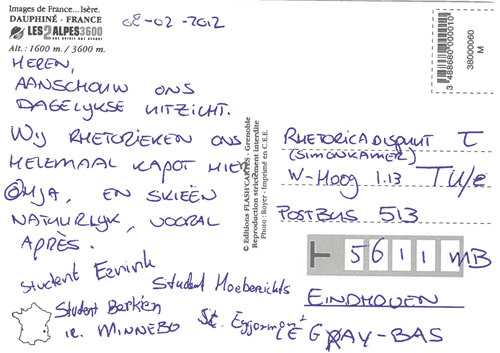 Images de France... Isère.
DAUPHINÉ - FRANCE
LES 2 ALPES 3600
Alt. : 1600 m. / 3600 m.
08-02-2012
HEREN,
AANSCHOUW ONS
DAGELYKSE UITZICHT.
WIJ RHETORIEKEN ONS
HELEMAAL KAPOT HIER
OHJA, EN SKIEËN
NATUURLYK, VOORAL
APRÈS.
Student Ernink
Student Hoeberichts
Student Berkien
ir. MINNEBO
St.
© Editions FLASHCARTES - Grenoble
Reproduction strictement interdite
Photo : Royer - Imprimé en C.E.E.
3 488680 000010
38000060
M
RHETORICADISPUUT T
(SIMONKAMER)
W-HOOG 1.13 TU/e
POSTBUS 513
5611 MB
EINDHOVEN
BAS